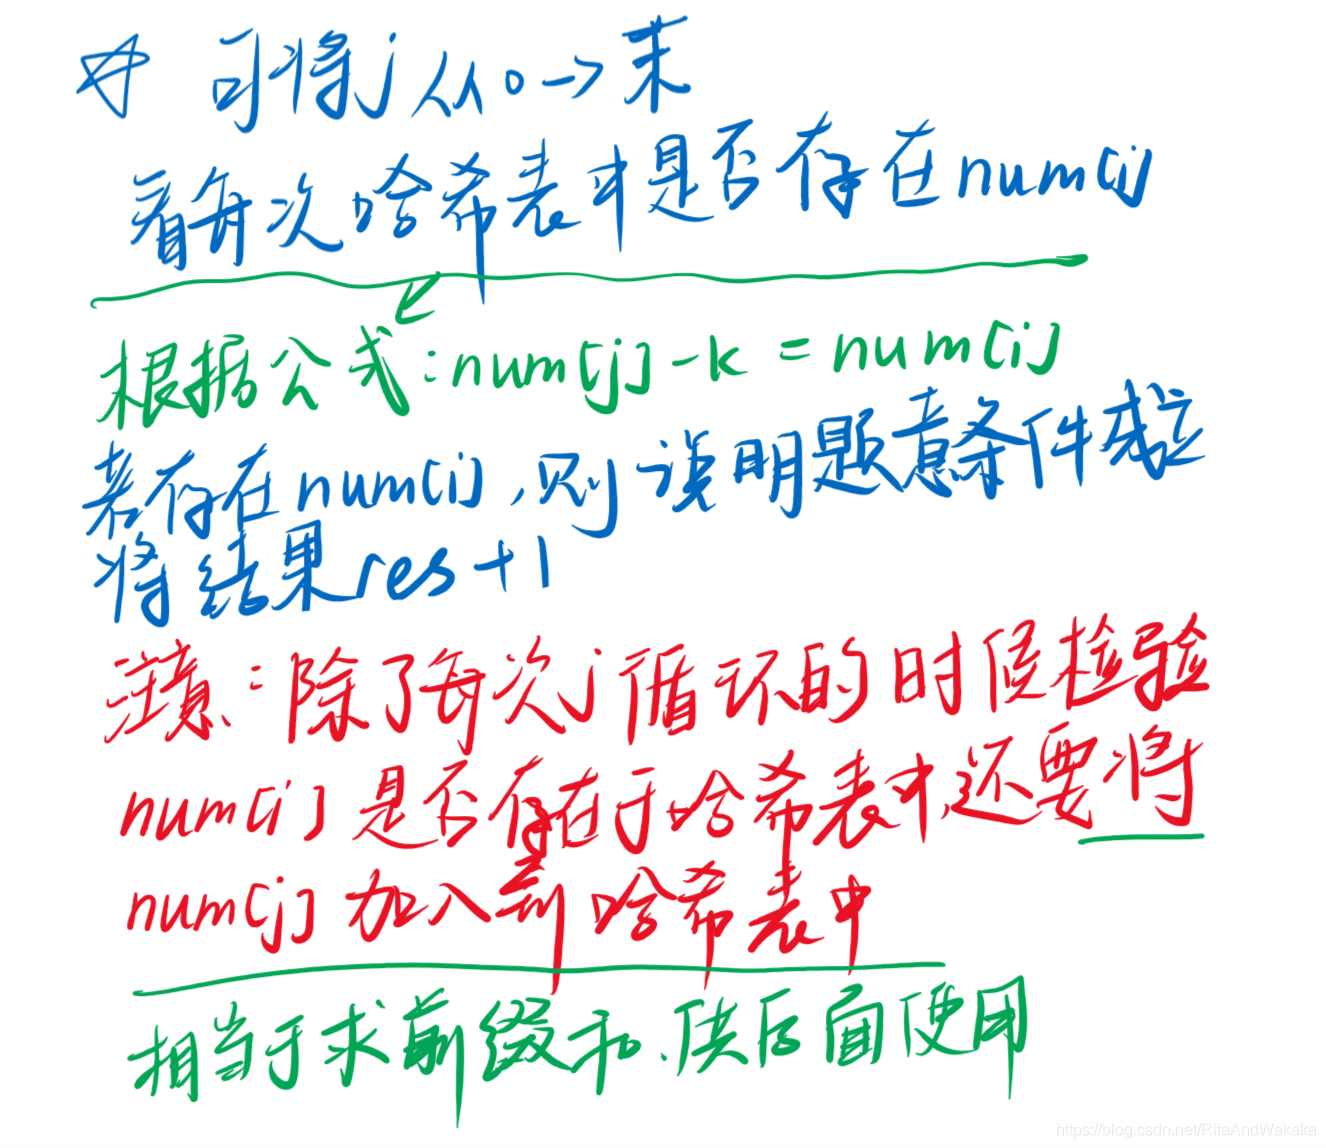 ☆ 可将j从0→末
看每次哈希表中是否存在num[i]
根据公式:num[j]-k=num[i]
若存在num[i],则说明题意条件成立
将结果res+1
注意:除了每次j循环的时候检验
num[i]是否存在于哈希表中,还要将
num[j]加入到哈希表中
相当于求前缀和.供后面使用
https://blog.csdn.net/RitaAndWakaka